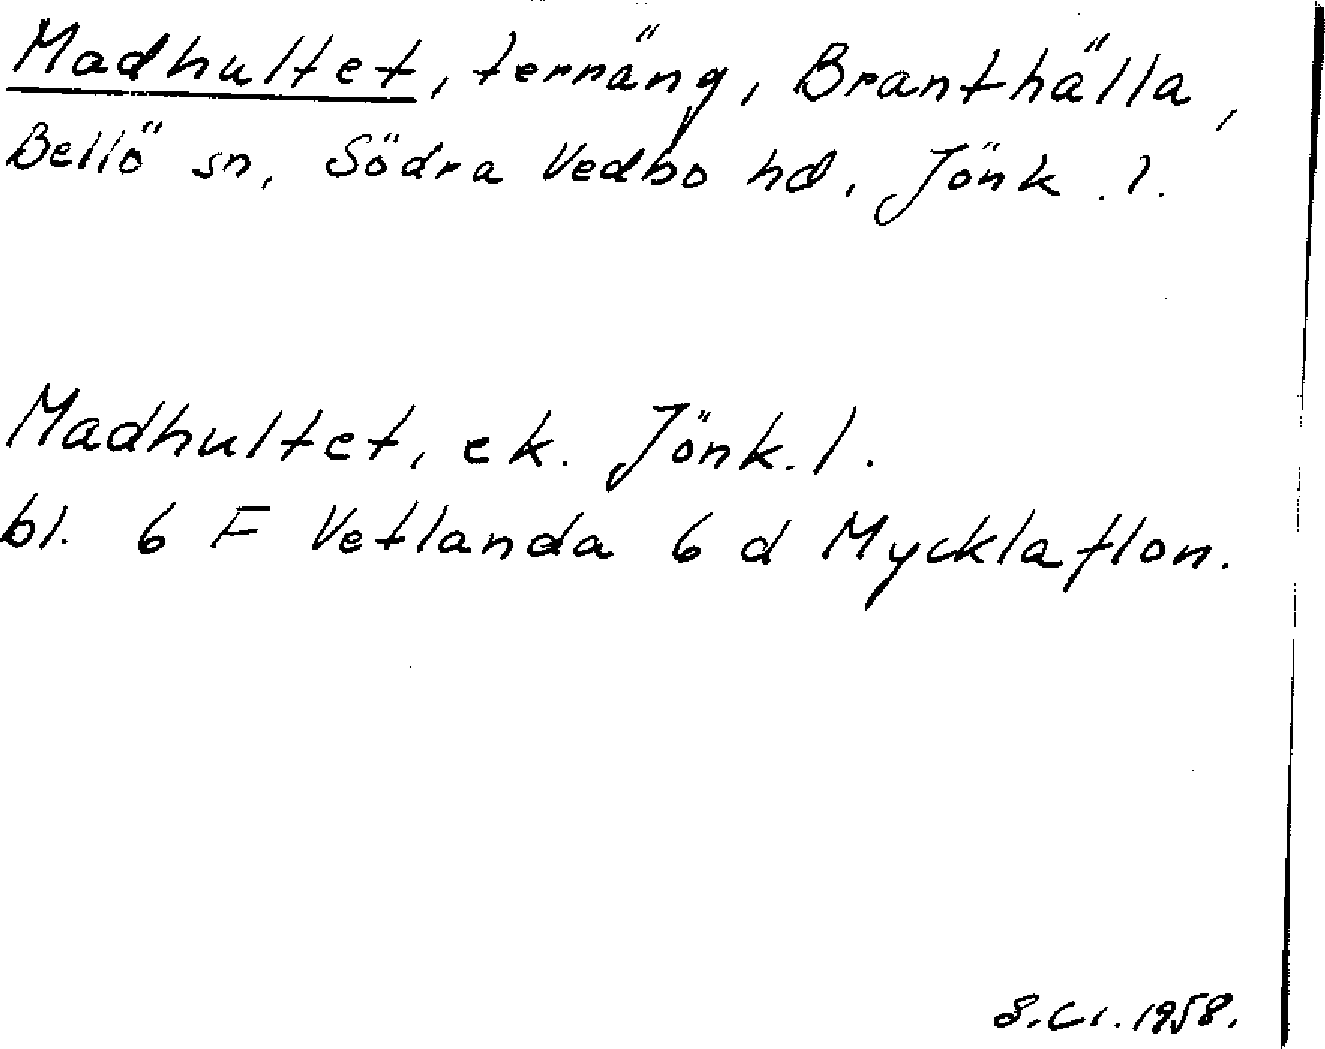 Madhultet, terräng, Branthälla,
Bellö sn, Södra Vedbo hd, Jönk. l.
Madhultet, ek. Jönk. l.
bl. 6 F Vetlanda 6 d Mycklaflon.
1958.